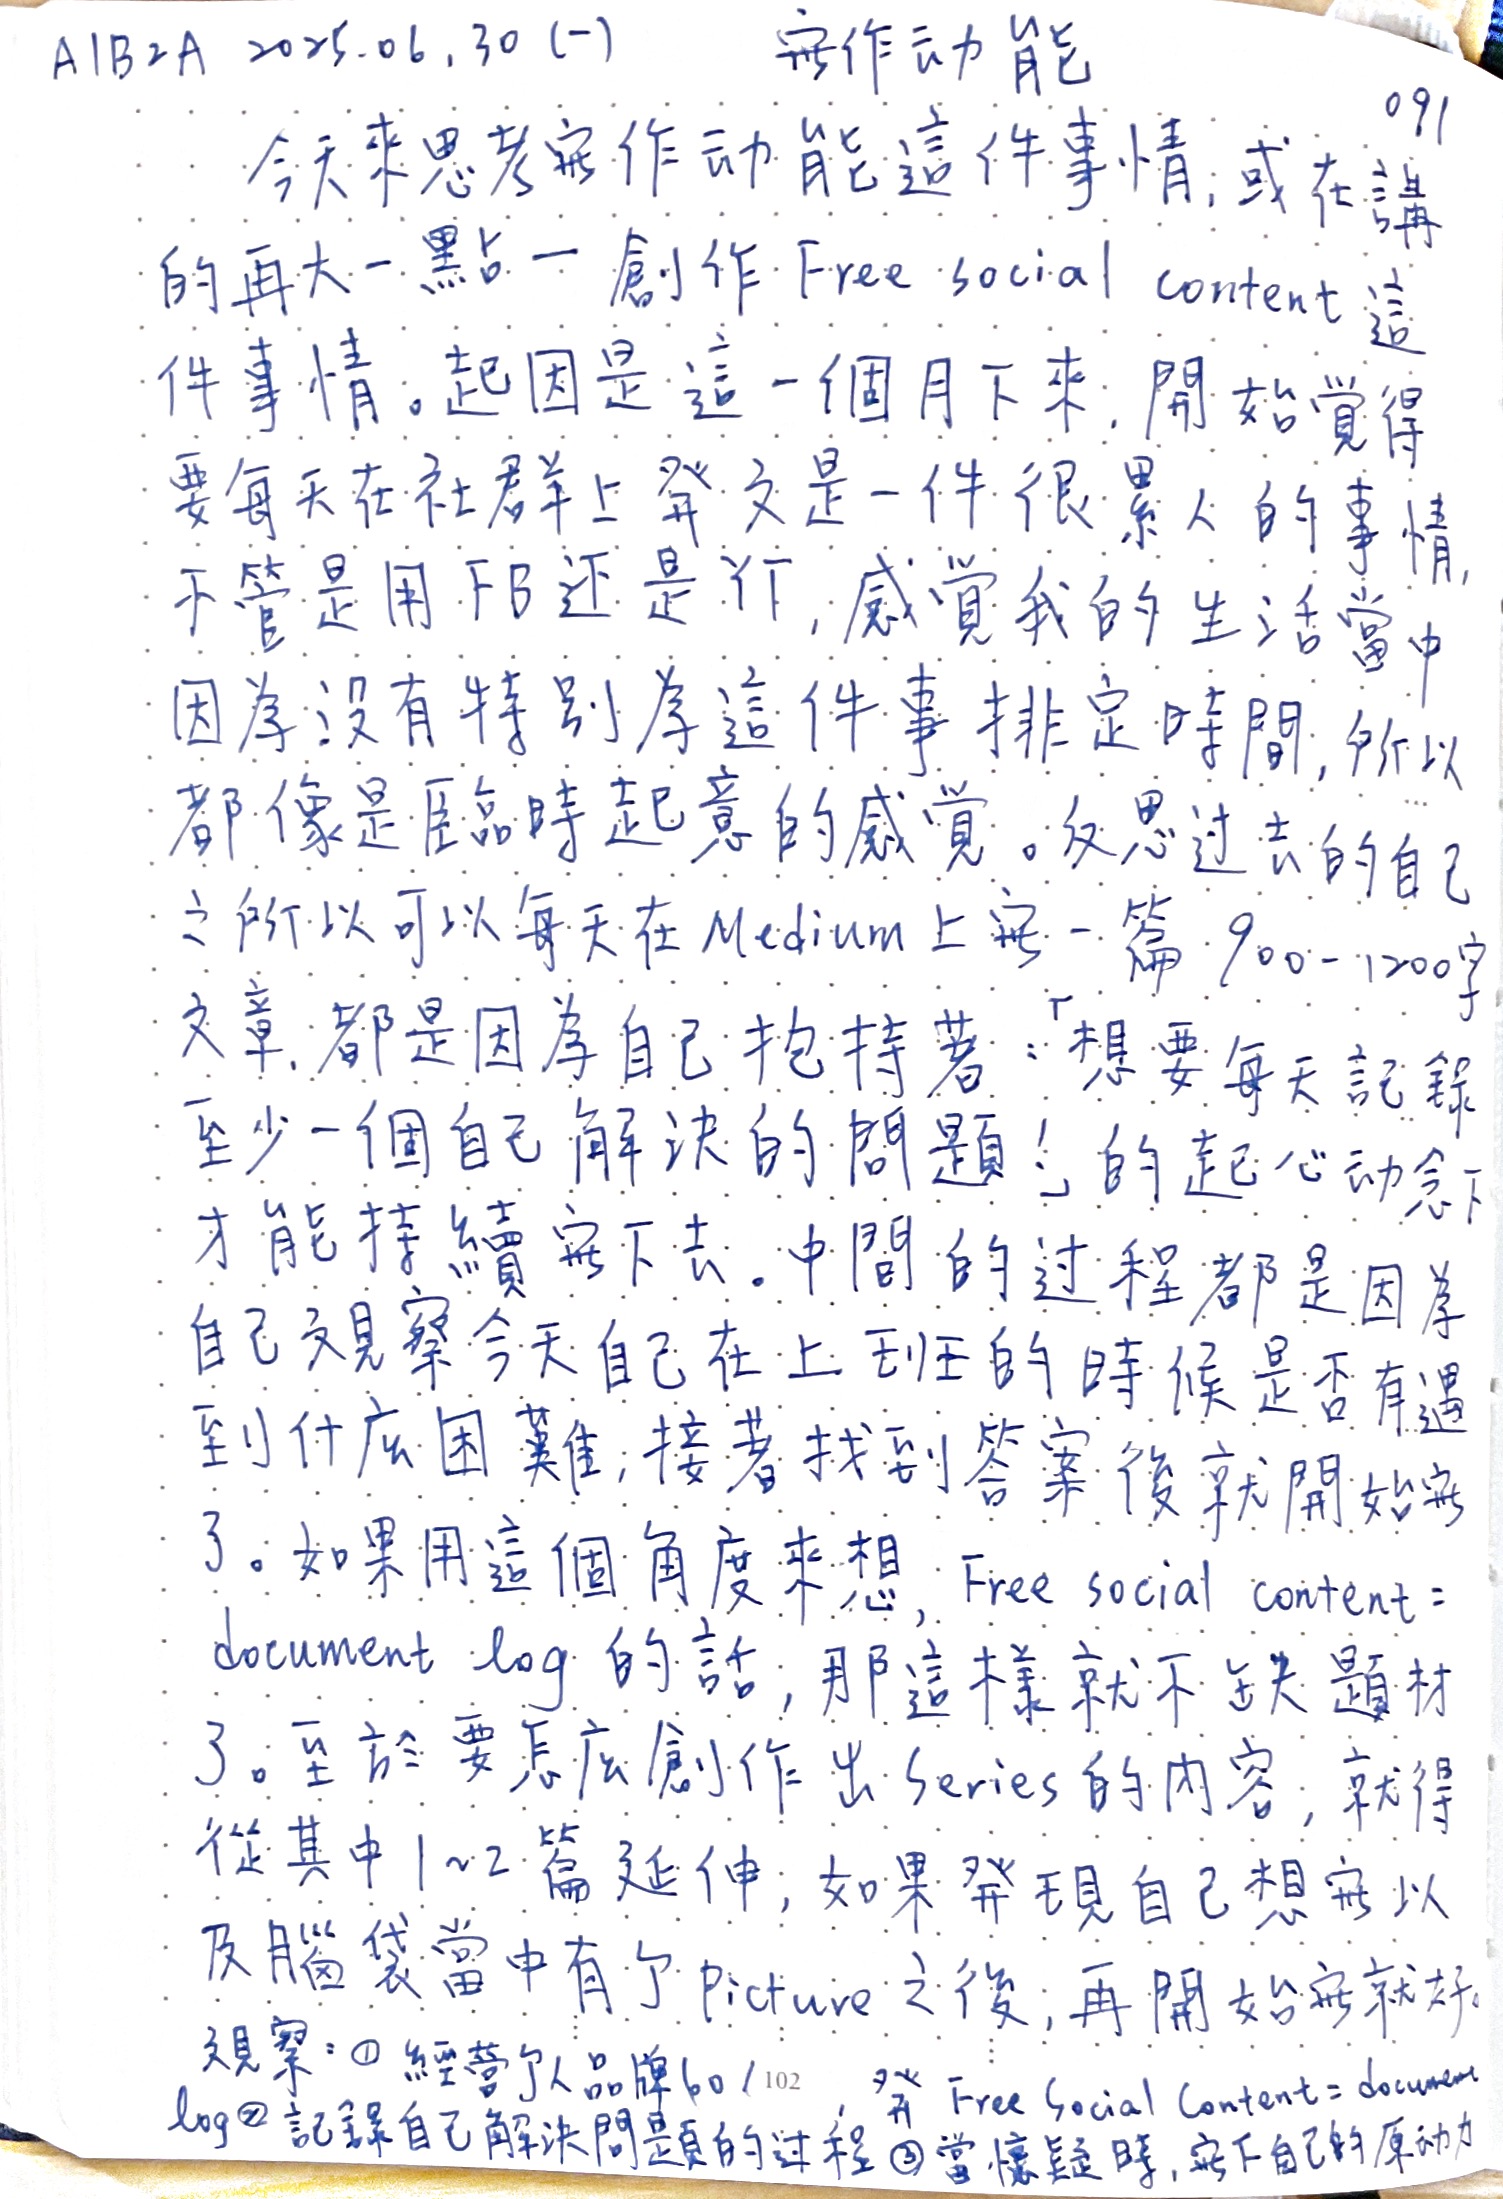 A1B2A 2025.06.30 (一) 寫作动能
091
今天來思考寫作动能這件事情,或在講
的再大一點一創作 Free social content 這
件事情。起因是這一個月下來,開始覺得
要每天在社群上発文是一件很累人的事情,
不管是用FB还是IT,感覺我的生活當中
因為没有特别為這件事排定時間,所以
都像是臨時起意的感覚。反思过去的自己
之所以可以每天在Medium上寫一篇900-1200字
文章,都是因為自己抱持著:「想要每天記録
至少一個自己解決的問題!」的起心动念下
才能持續寫下去。中間的过程都是因為
自己观察今天自己在上班的時候是否有遇
到什庅困難,接著找到答案後就開始寫
了。如果用這個角度來想,Free social content =
document log 的話,那這樣就不缺題材
了。至於要怎庅創作出 series 的内容,就得
從其中1~2篇延伸,如果発現自己想寫以
及腦袋當中有了picture之後,再開始寫就好。
观察:① 經营个人品牌601 102,発 Free Social Content = document
log ② 記録自己解決問題的过程 ③ 當懷疑時,寫下自己的原动力